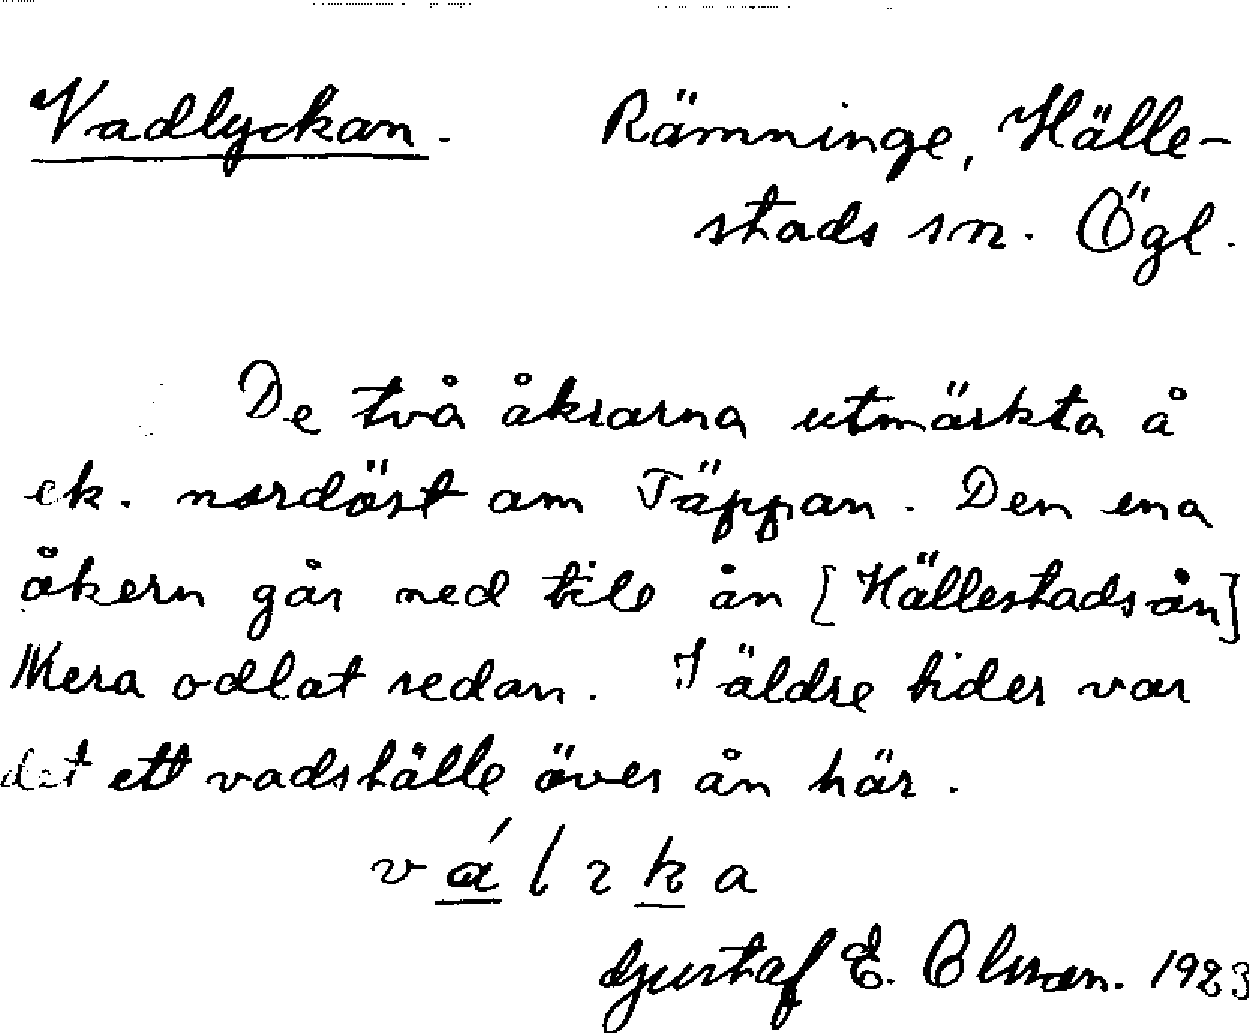 Vadlyckan. Rämninge, Hälle-
stads sn. Ögl.
De två åkrarna utmärkta å
ek. nordöst om Täppan. Den ena
åkern går ned till ån [Hällestadsån]
Mera odlat redan. I äldre tider var
det ett vadställe över ån här.
Gustaf E. Olsson. 1923